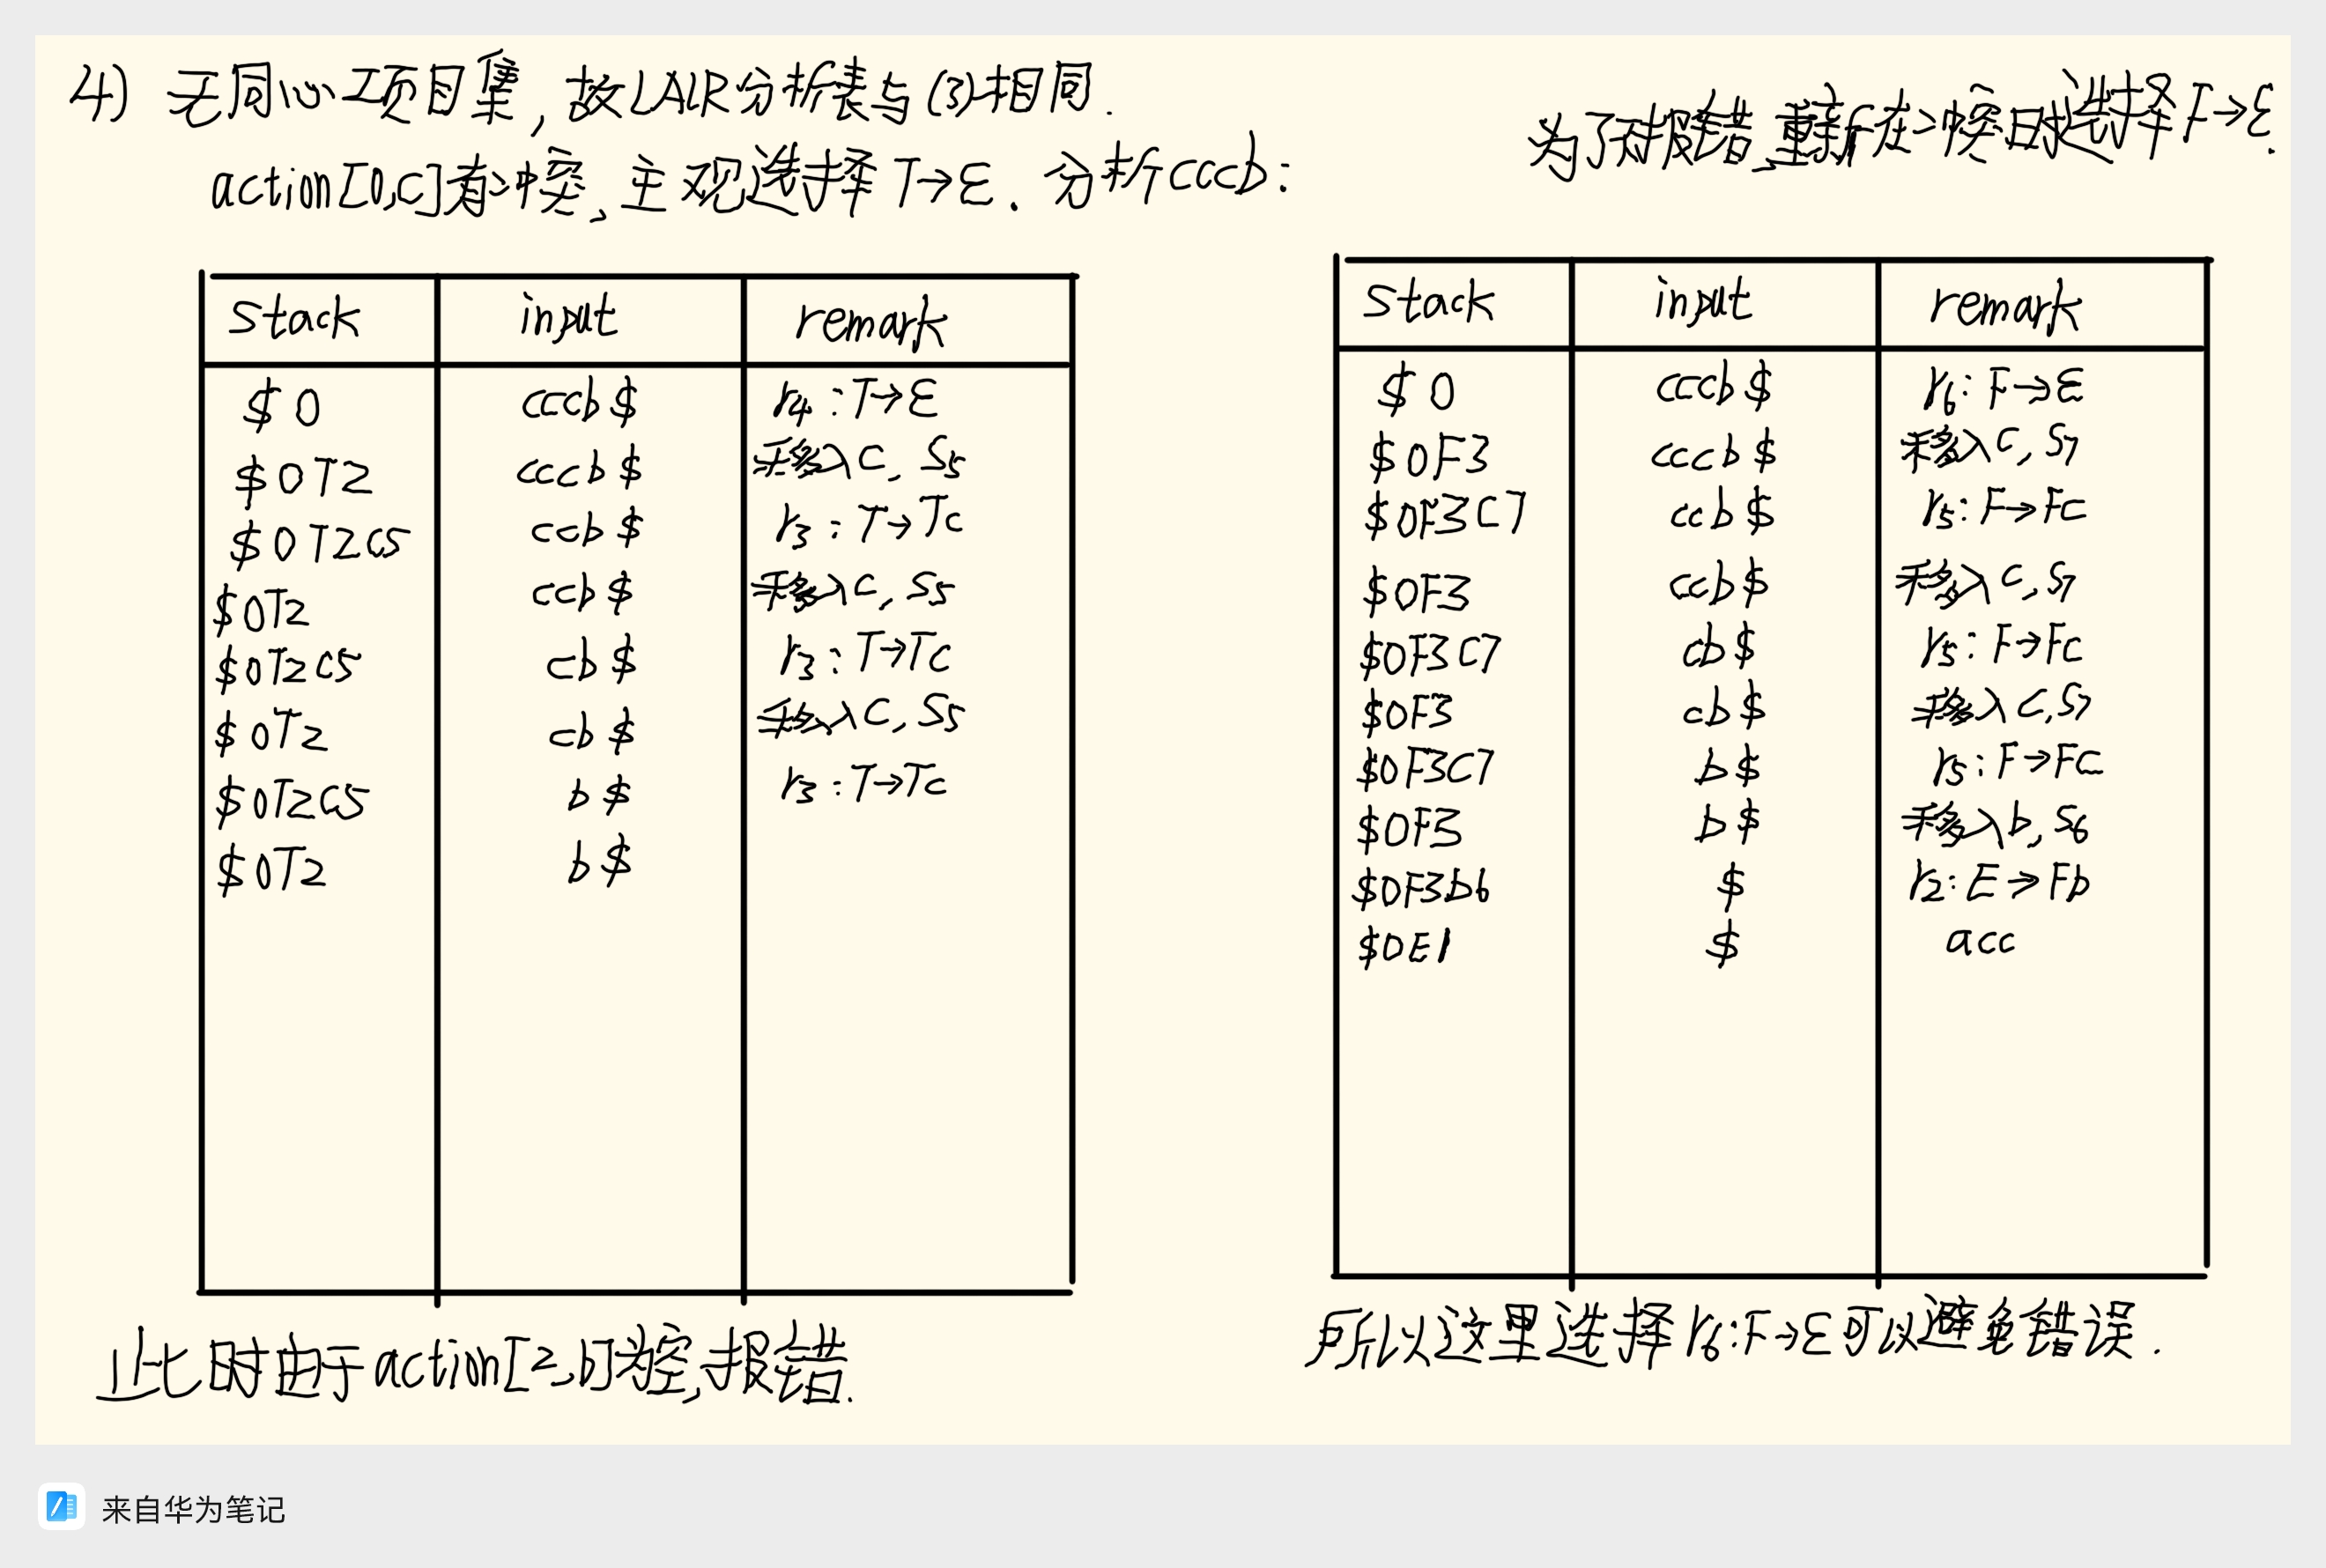 4) 无同心项目集，故LALR分析表与(3)相同.
action[0,c]有冲突,主观选择 T→ε. 分析cccb:
stack input remark
$0 cccb$ r4:T→ε
$0T2 cccb$ 移入c, S5
$0T2c5 ccb$ r3:T→Tc
$0T2 ccb$ 移入c, S5
$0T2c5 cb$ r3:T→Tc
$0T2 cb$ 移入c, S5
$0T2c5 b$ r3:T→Tc
$0T2 b$
此时由于action[2,b]为空,报错.
为了不报错,重新在冲突时选择F→ε.
stack input remark
$0 cccb$ r6:F→ε
$0F3 cccb$ 移入c, S7
$0F3c7 ccb$ r5:F→Fc
$0F3 ccb$ 移入c, S7
$0F3c7 cb$ r5:F→Fc
$0F3 cb$ 移入c, S7
$0F3c7 b$ r5:F→Fc
$0F3 b$ 移入b, S6
$0F3b6 $ r2:E→Fb
$0E1 $ acc
所以这里选择r6:F→ε可以避免错误.
来自华为笔记